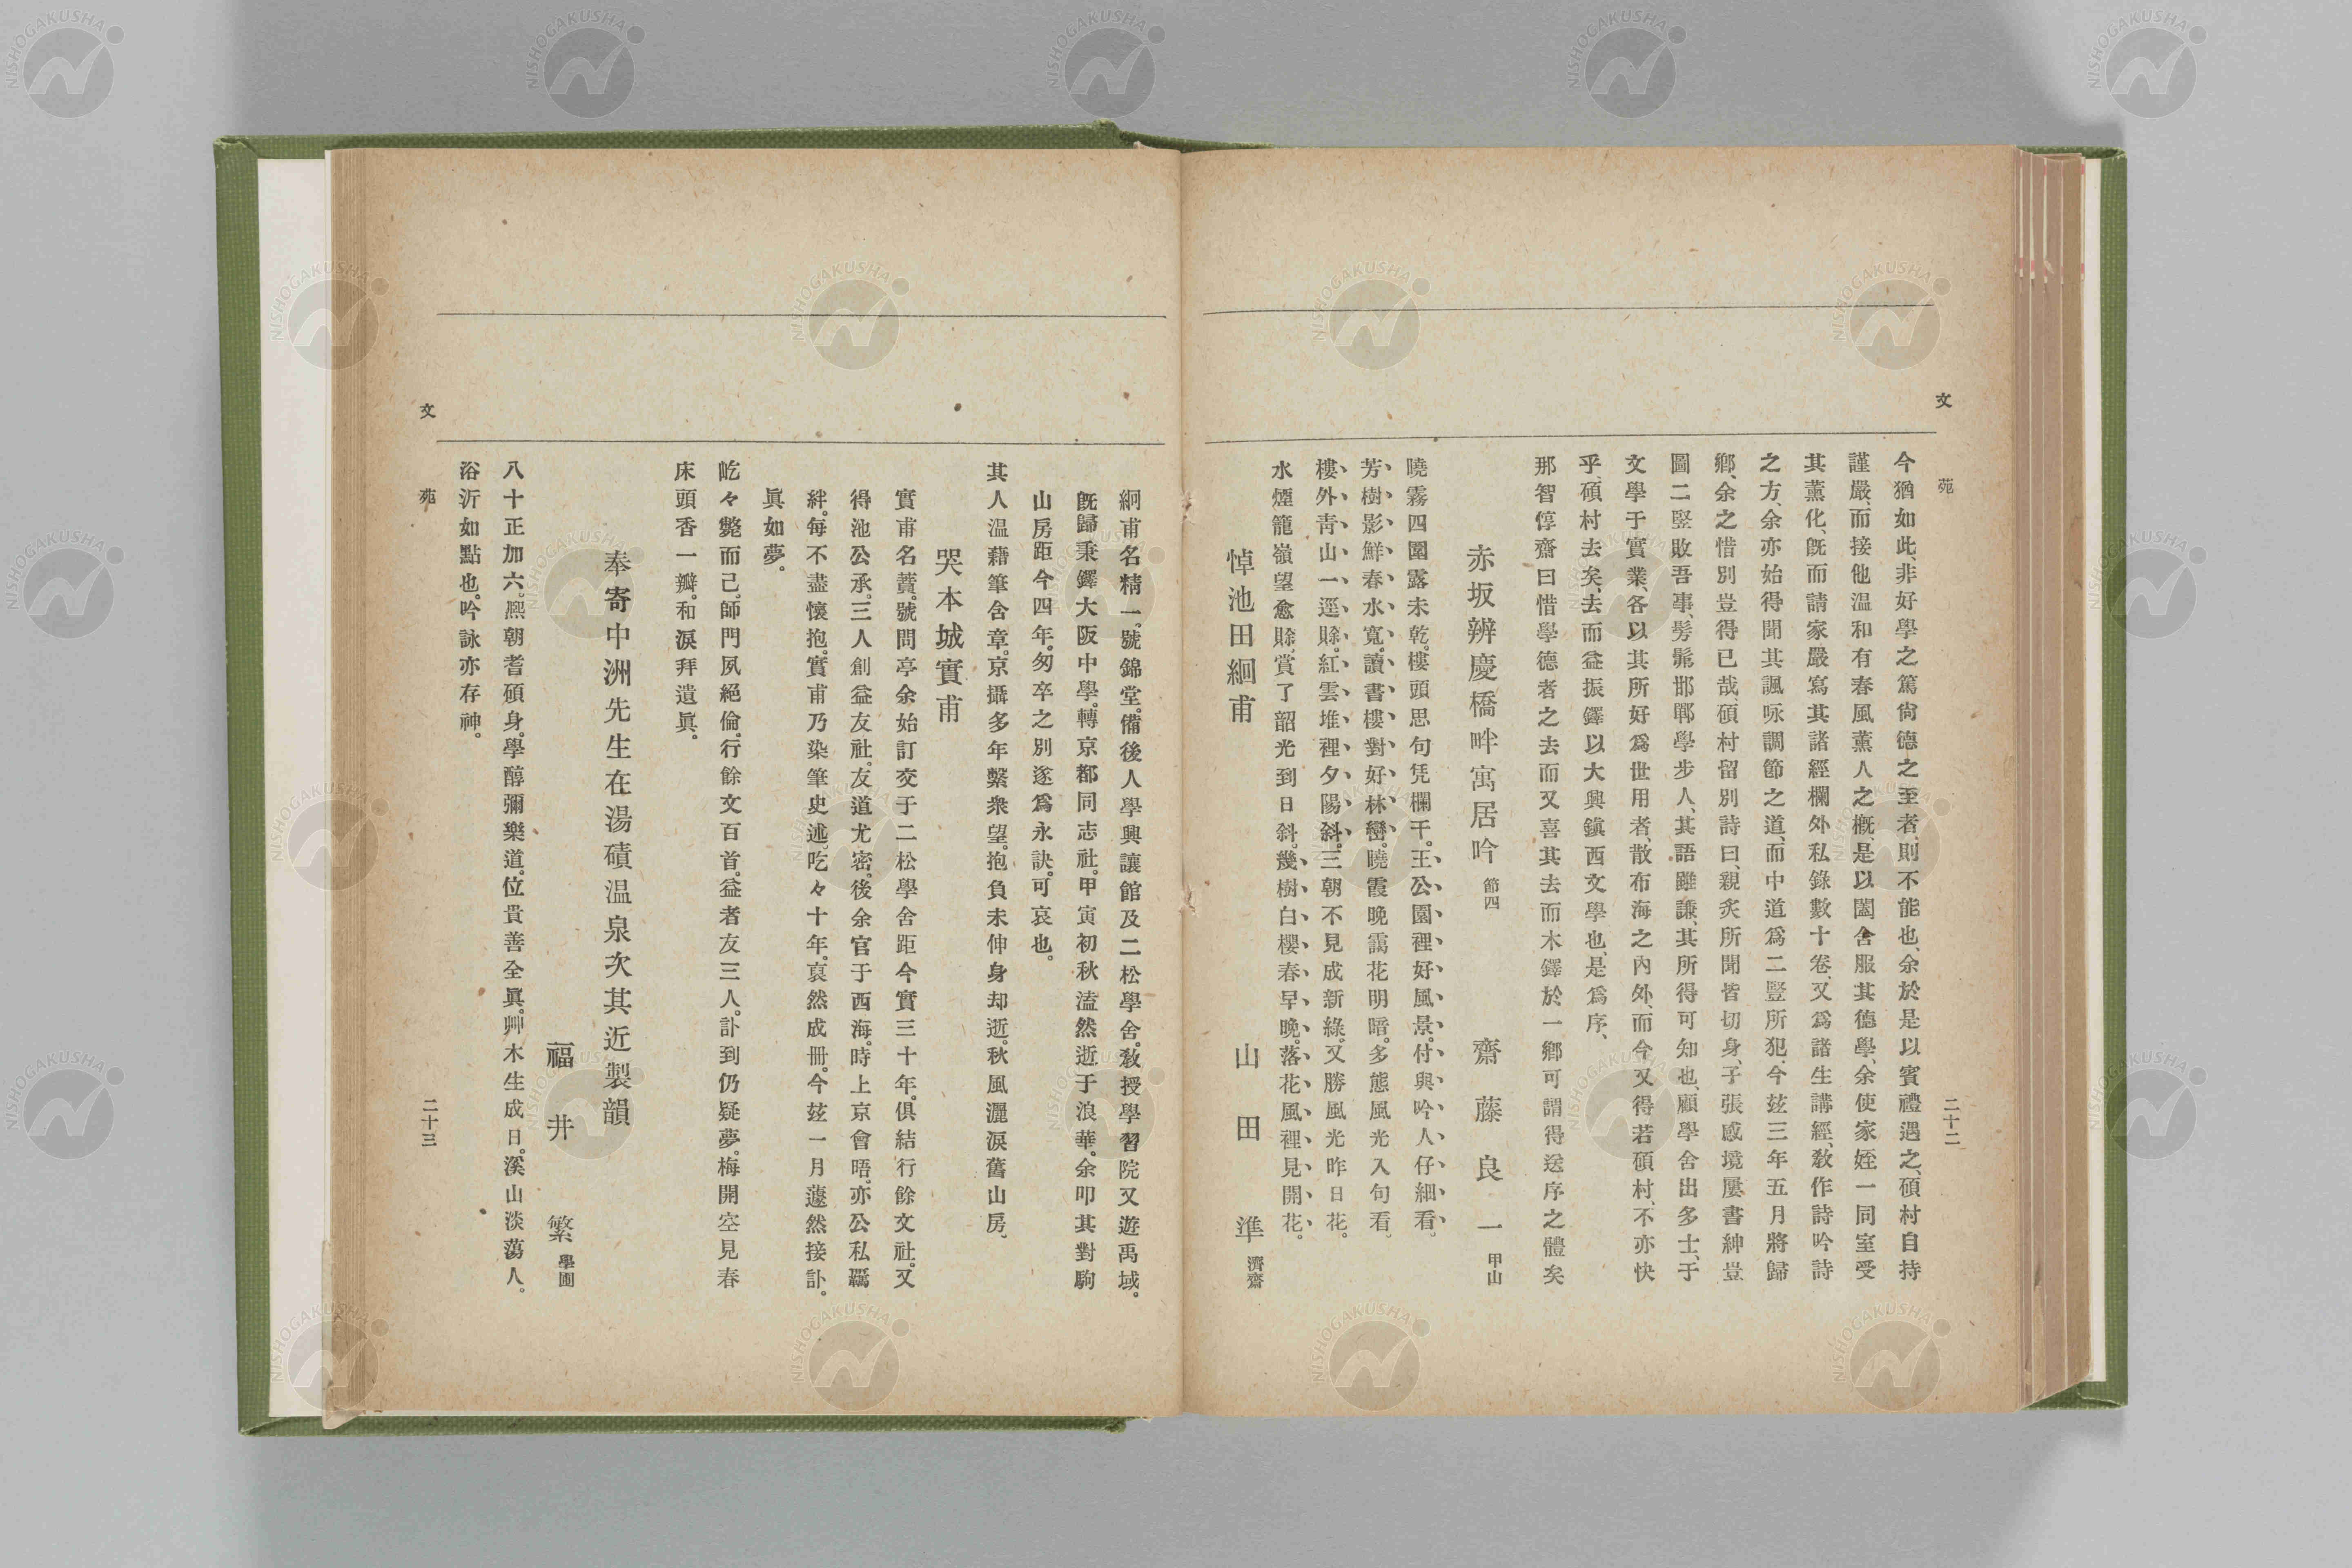 文苑
二十二
今猶如此、非好學之篤尙德之至者、則不能也、余於是以賓禮遇之、碩村自持
謹嚴而接他温和有春風薰人之概、是以闔舍服其德學、余使家姪一同室受
其薰化、旣而請家嚴寫其諸經欄外私錄數十卷、又爲諸生講經、敎作詩吟詩
之方、余亦始得聞其諷咏調節之道、而中道爲二豎所犯、今玆三年五月將歸
鄉、余之惜別豈得已哉、碩村留別詩曰、親炙所聞皆切身、子張感境屢書紳豈
圖二豎敗吾事、髣髴邯鄲學步人、其語雖謙、其所得可知也、顧學舍出多士、于
文學于實業、各以其所好爲世用者散布海之內外、而今又得若碩村、不亦快
乎、碩村去矣、去而益振鐸以大興鎭西文學也、是爲序、
那智惇齋曰惜學德者之去而又喜其去而木鐸於一鄉可謂得送序之體矣
赤坂辨慶橋畔寓居吟 節四
齋藤良一 甲山
曉霧四圍露未乾。樓頭思句凭欄干。王公園裡好風景。付與吟人仔細看。
芳樹影鮮春水寬。讀書樓對好林巒。曉霞晚靄花明暗。多態風光入句看。
樓外靑山一逕賖。紅雲堆裡夕陽斜。三朝不見成新綠。又勝風光昨日花。
水煙籠嶺望愈賖。賞了韶光到日斜。幾樹白櫻春早晚。落花風裡見開花。
悼池田絅甫
山田準 濟齋
絅甫名精一。號錦堂。備後人學興讓館及二松學舍。敎授學習院又遊禹域。
旣歸秉鐸大阪中學。轉京都同志社。甲寅初秋溘然逝于浪華。余叩其對駒
山房距今四年。匆卒之別遂爲永訣。可哀也。
其人温藉筆含章。京攝多年繫衆望。抱負未伸身却逝。秋風灑淚舊山房。
哭本城實甫
實甫名蕡。號問亭余始訂交于二松學舍距今實三十年。俱結行餘文社。又
得池公承。三人創益友社。友道尤密。後余官于西海。時上京會晤。亦公私羈
絆。每不盡懷抱。實甫乃染筆史述。吃々十年。裒然成冊。今玆一月蘧然接訃。
眞如夢。
屹々斃而已。師門夙絕倫。行餘文百首。益者友三人。訃到仍疑夢。梅開空見春
床頭香一瓣。和淚拜遺眞。
奉寄中洲先生在湯磧温泉次其近製韻
福井繁 學圃
八十正加六。熙朝耆碩身。學醇彌樂道。位貴善全眞。艸木生成日。溪山淡蕩人。
浴沂如點也。吟詠亦存神。
文苑
二十三